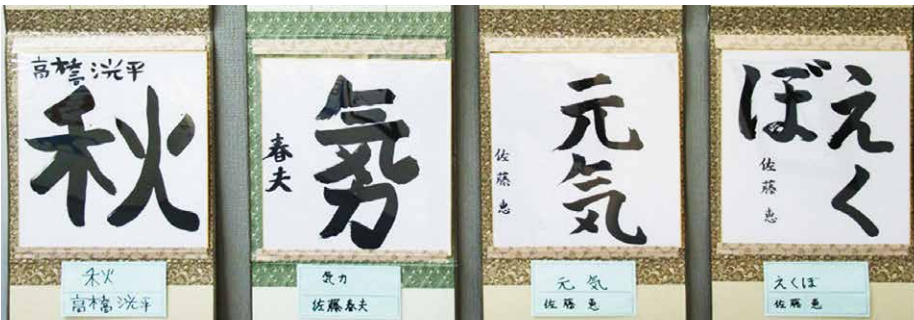 高橋洸平
秋
秋
高橋洸平
気力
春夫
気力
佐藤春夫
元気
佐藤恵
元気
佐藤恵
えく
ぼ
佐藤恵
えくぼ
佐藤恵